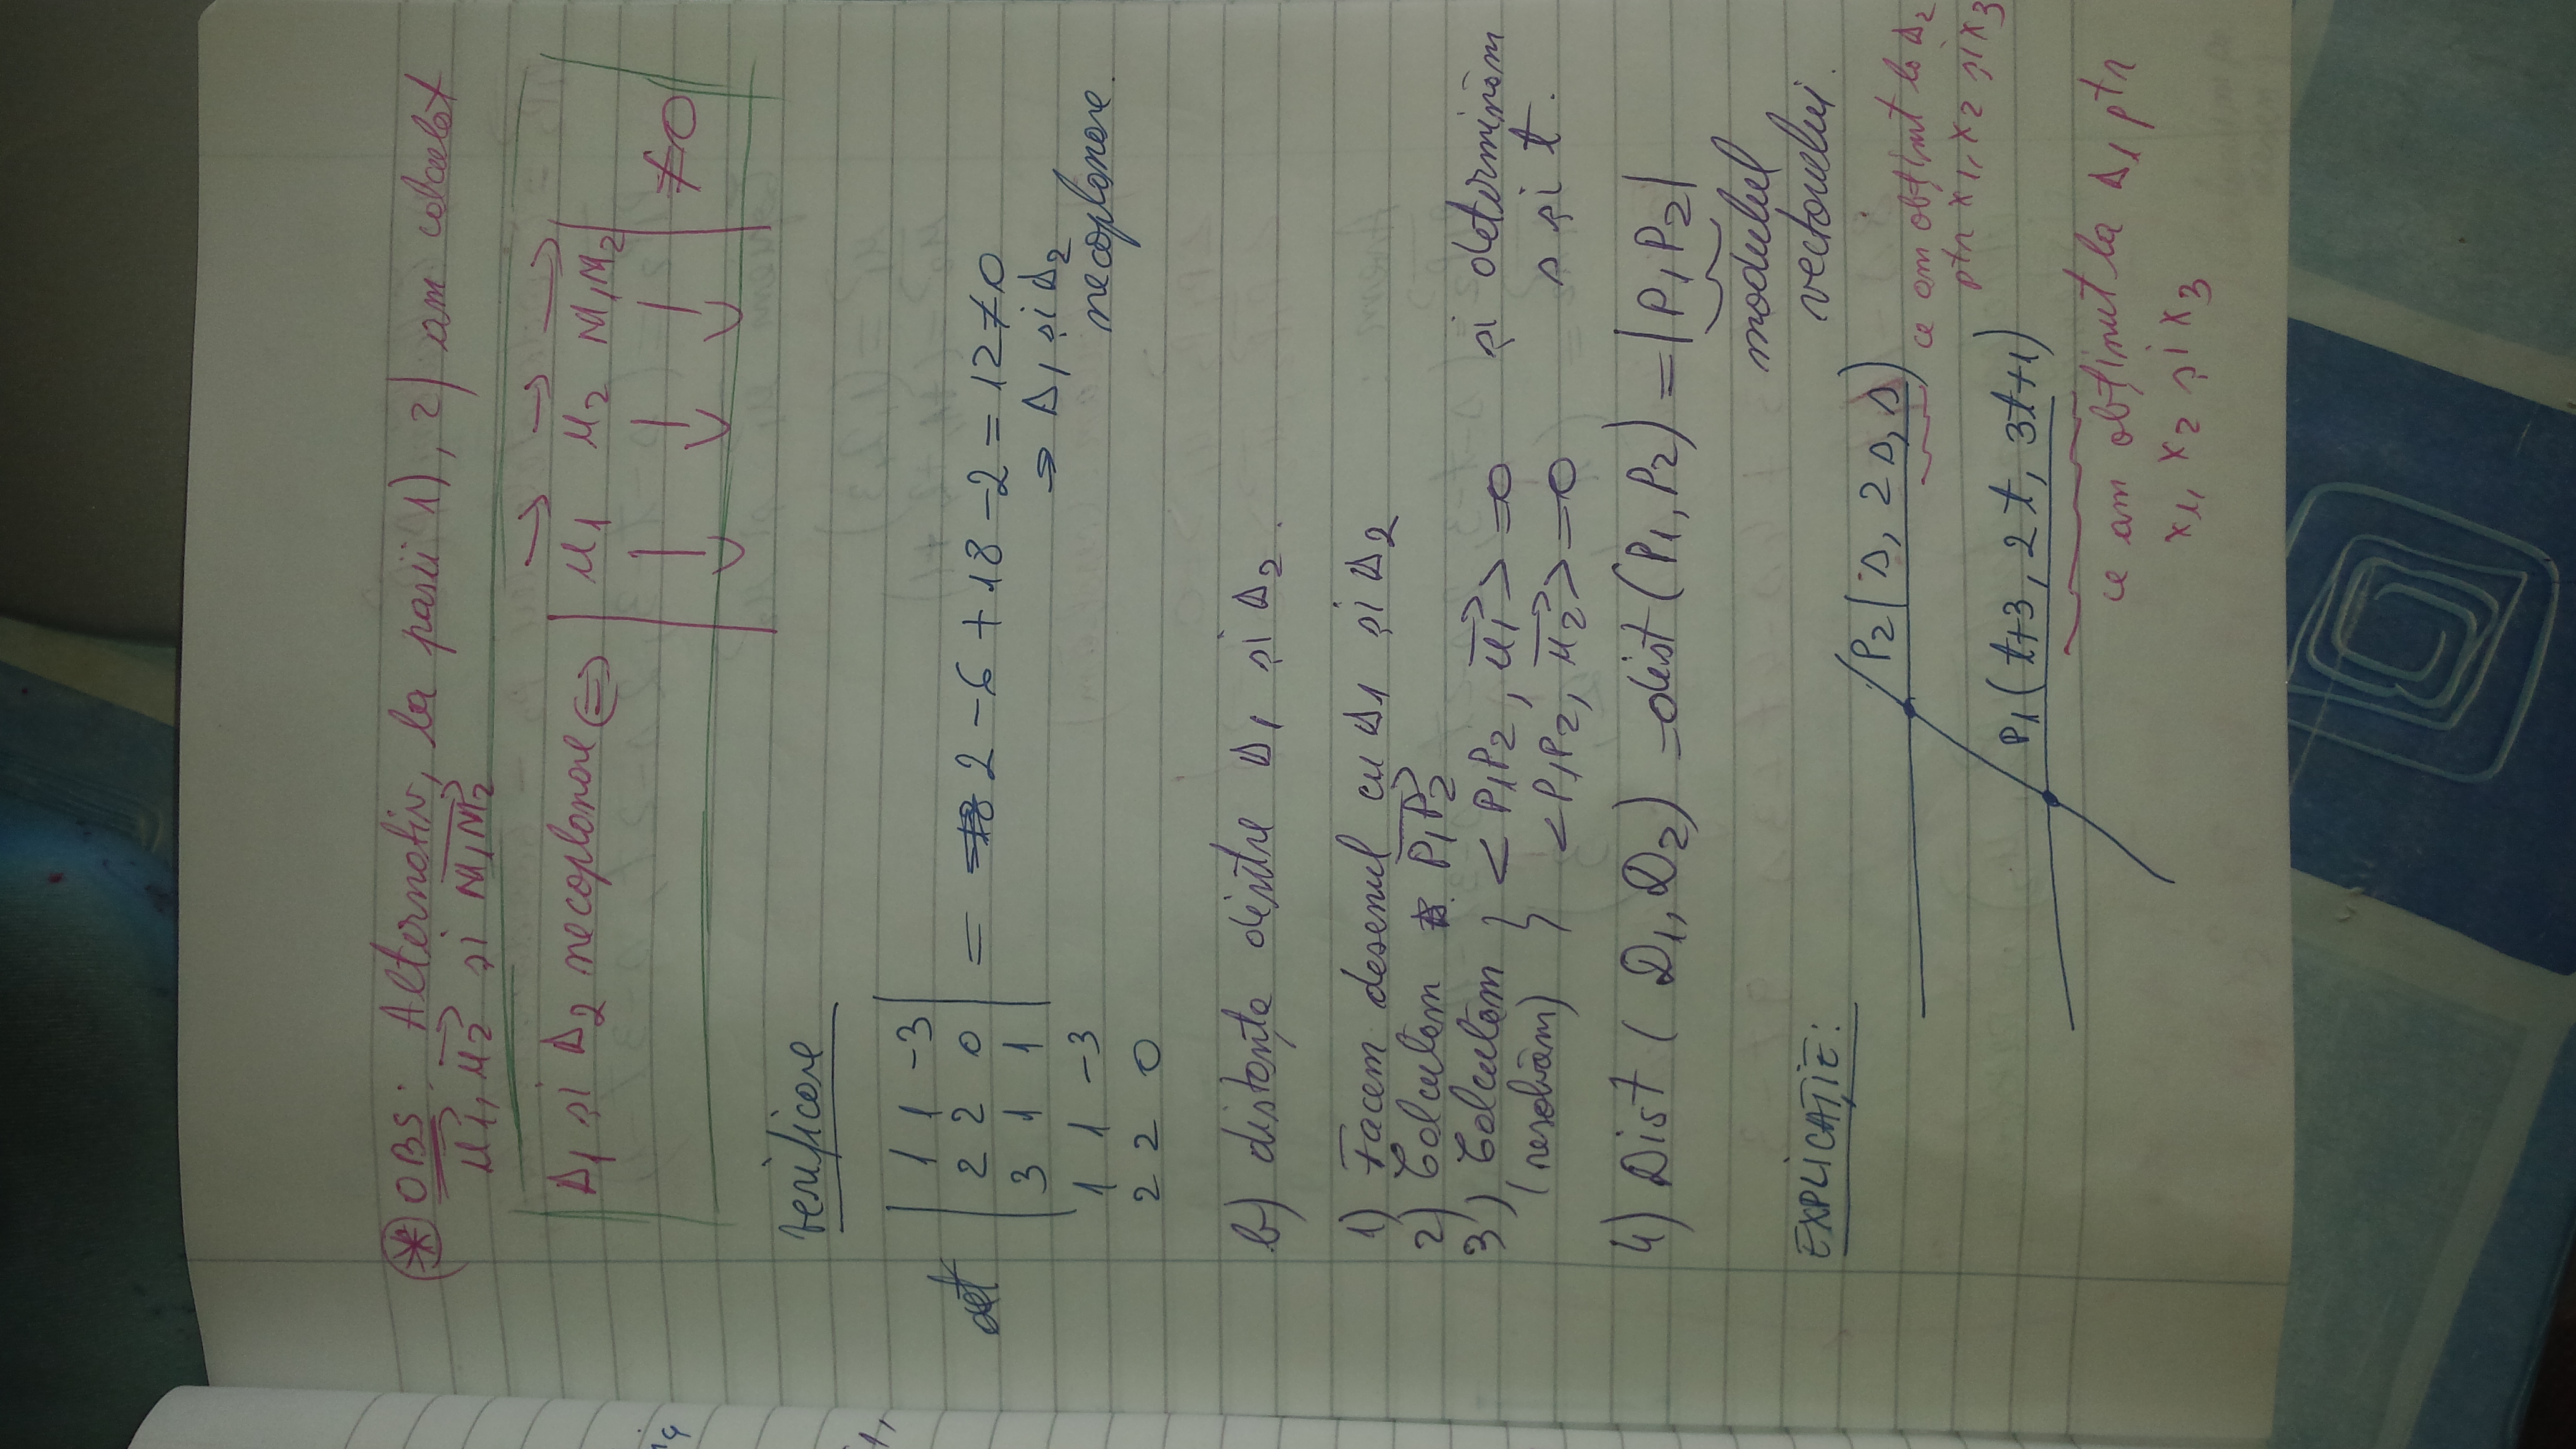 * OBS: Alternativ, la pasii 1), 2) am calculat
u1, u2 și M1M2
Δ1 și Δ2 necoplanare ⇔ | u1 u2 M1M2 | ≠0
Verificare
det | 1 1 -3 |
| 2 2 0 | = 2 - 6 + 18 - 2 = 12 ≠ 0
| 3 1 1 | ⇒ Δ1 și Δ2
1 1 -3 necoplanare.
2 2 0
b) distanța dintre Δ1 și Δ2.
1) Facem desenul cu Δ1 și Δ2
2) Calculăm P1P2
3) Calculăm } < P1P2, u1 > = 0 și determinăm
(rezolvăm) } < P1P2, u2 > = 0 s și t.
4) Dist ( D1, D2 ) = dist ( P1, P2 ) = | P1P2 |
modulul
vectorului.
EXPLICAȚIE:
P2 ( s, 2s, s )
ce am obținut la Δ2
ptr x1, x2 și x3
P1 ( t+3, 2t, 3t+1 )
ce am obținut la Δ1 ptr
x1, x2 și x3